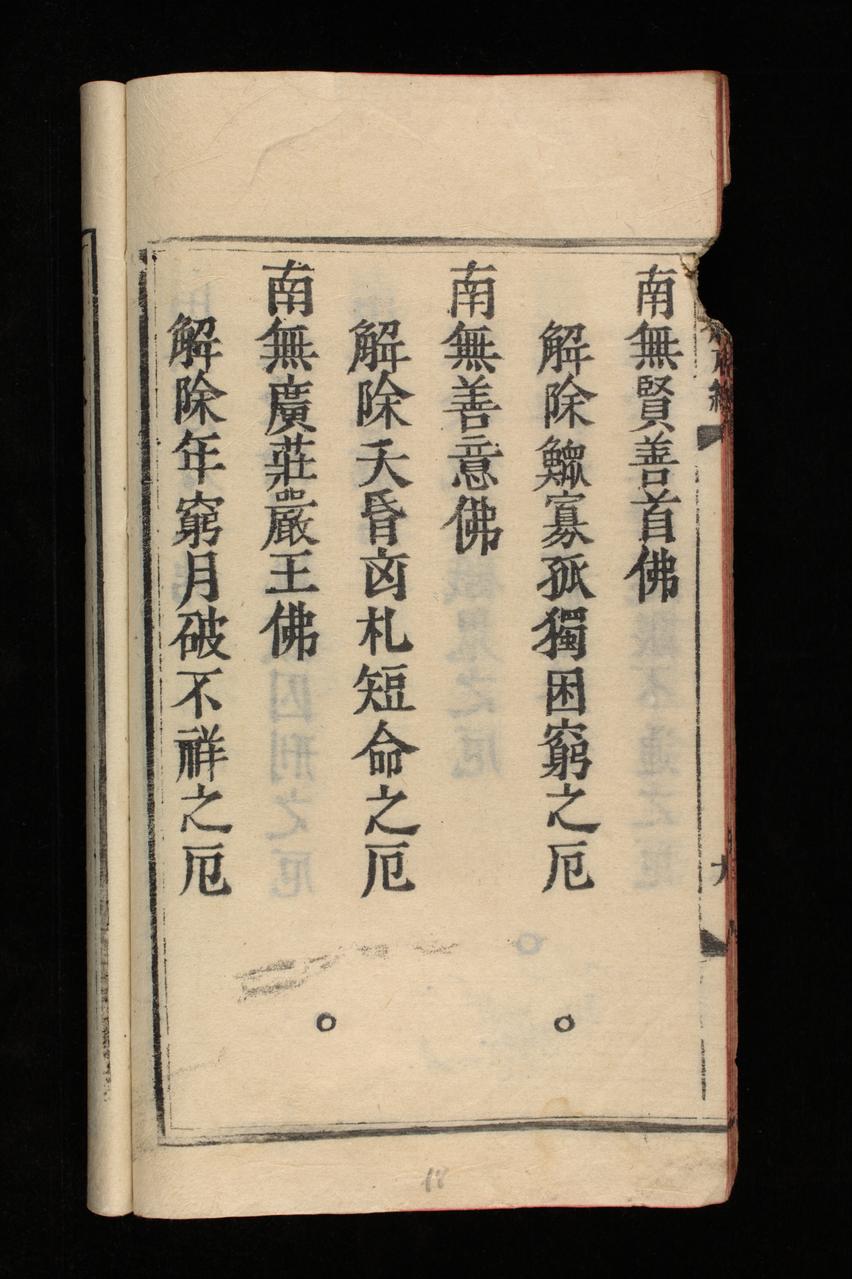 南無賢善首佛
解除鰥寡孤獨困窮之厄
南無善意佛
解除夭昏囟札短命之厄
南無廣莊嚴王佛
解除年窮月破不祥之厄
18